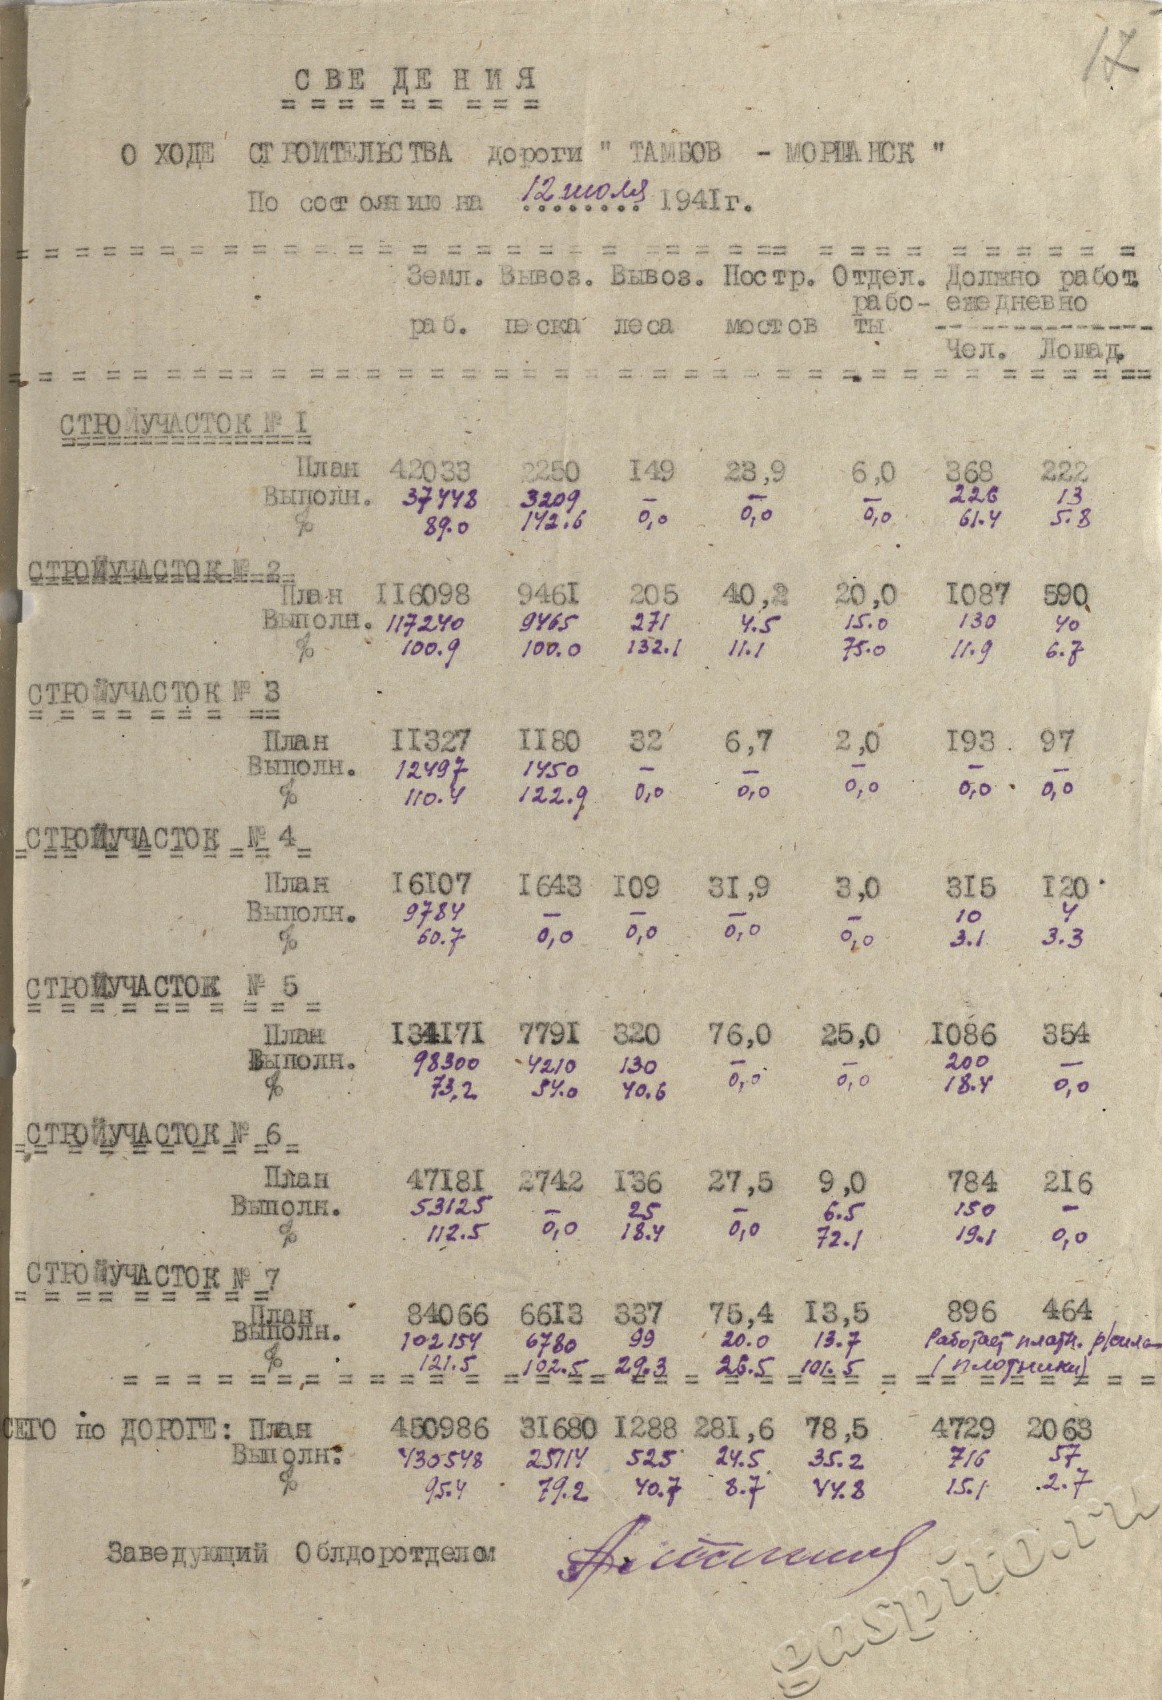 17
СВЕДЕНИЯ
О ХОДЕ СТРОИТЕЛЬСТВА дороги " ТАМБОВ - МОРШАНСК "
По состоянию на 12 июля 1941 г.
Земл. Вывоз. Вывоз. Постр. Отдел. Должно работ.
рабо- ежедневно
раб. песка леса мостов ты
Чел. Лошад.
СТРОЙУЧАСТОК № I
План 42033 2250 I49 23,9 6,0 368 222
Выполн. 37448 3209 – – – 226 13
% 89.0 142.6 0,0 0,0 0,0 61.4 5.8
СТРОЙУЧАСТОК № 2
План II6098 946I 205 40,2 20,0 I087 590
Выполн. 117240 9465 271 4.5 15.0 130 40
% 100.9 100.0 132.1 11.1 75.0 11.9 6.7
СТРОЙУЧАСТОК № 3
План II327 II80 32 6,7 2,0 I93 97
Выполн. 12497 1450 – – – – –
% 110.4 122.9 0,0 0,0 0,0 0,0 0,0
СТРОЙУЧАСТОК № 4
План I6I07 I643 I09 3I,9 3,0 3I5 I20
Выполн. 9784 – – – – 10 4
% 60.7 0,0 0,0 0,0 0,0 3.1 3.3
СТРОЙУЧАСТОК № 5
План I34I7I 779I 320 76,0 25,0 I086 354
Выполн. 98300 4210 130 – – 200 –
% 73,2 54.0 40.6 0,0 0,0 18.4 0,0
СТРОЙУЧАСТОК № 6
План 47I8I 2742 I36 27,5 9,0 784 2I6
Выполн. 53125 – 25 – 6.5 150 –
% 112.5 0,0 18.4 0,0 72.1 19.1 0,0
СТРОЙУЧАСТОК № 7
План 84066 66I3 337 75,4 I3,5 896 464
Выполн. 102154 6780 99 20.0 13.7 Работает платн. р/сила
% 121.5 102.5 29.3 26.5 101.5 (плотники)
СЕГО по ДОРОГЕ: План 450986 31680 I288 28I,6 78,5 4729 2063
Выполн: 430548 25114 525 24.5 35.2 716 57
% 95.4 79.2 40.7 8.7 44.8 15.1 2.7
Заведующий Облдоротделом
gaspito.ru